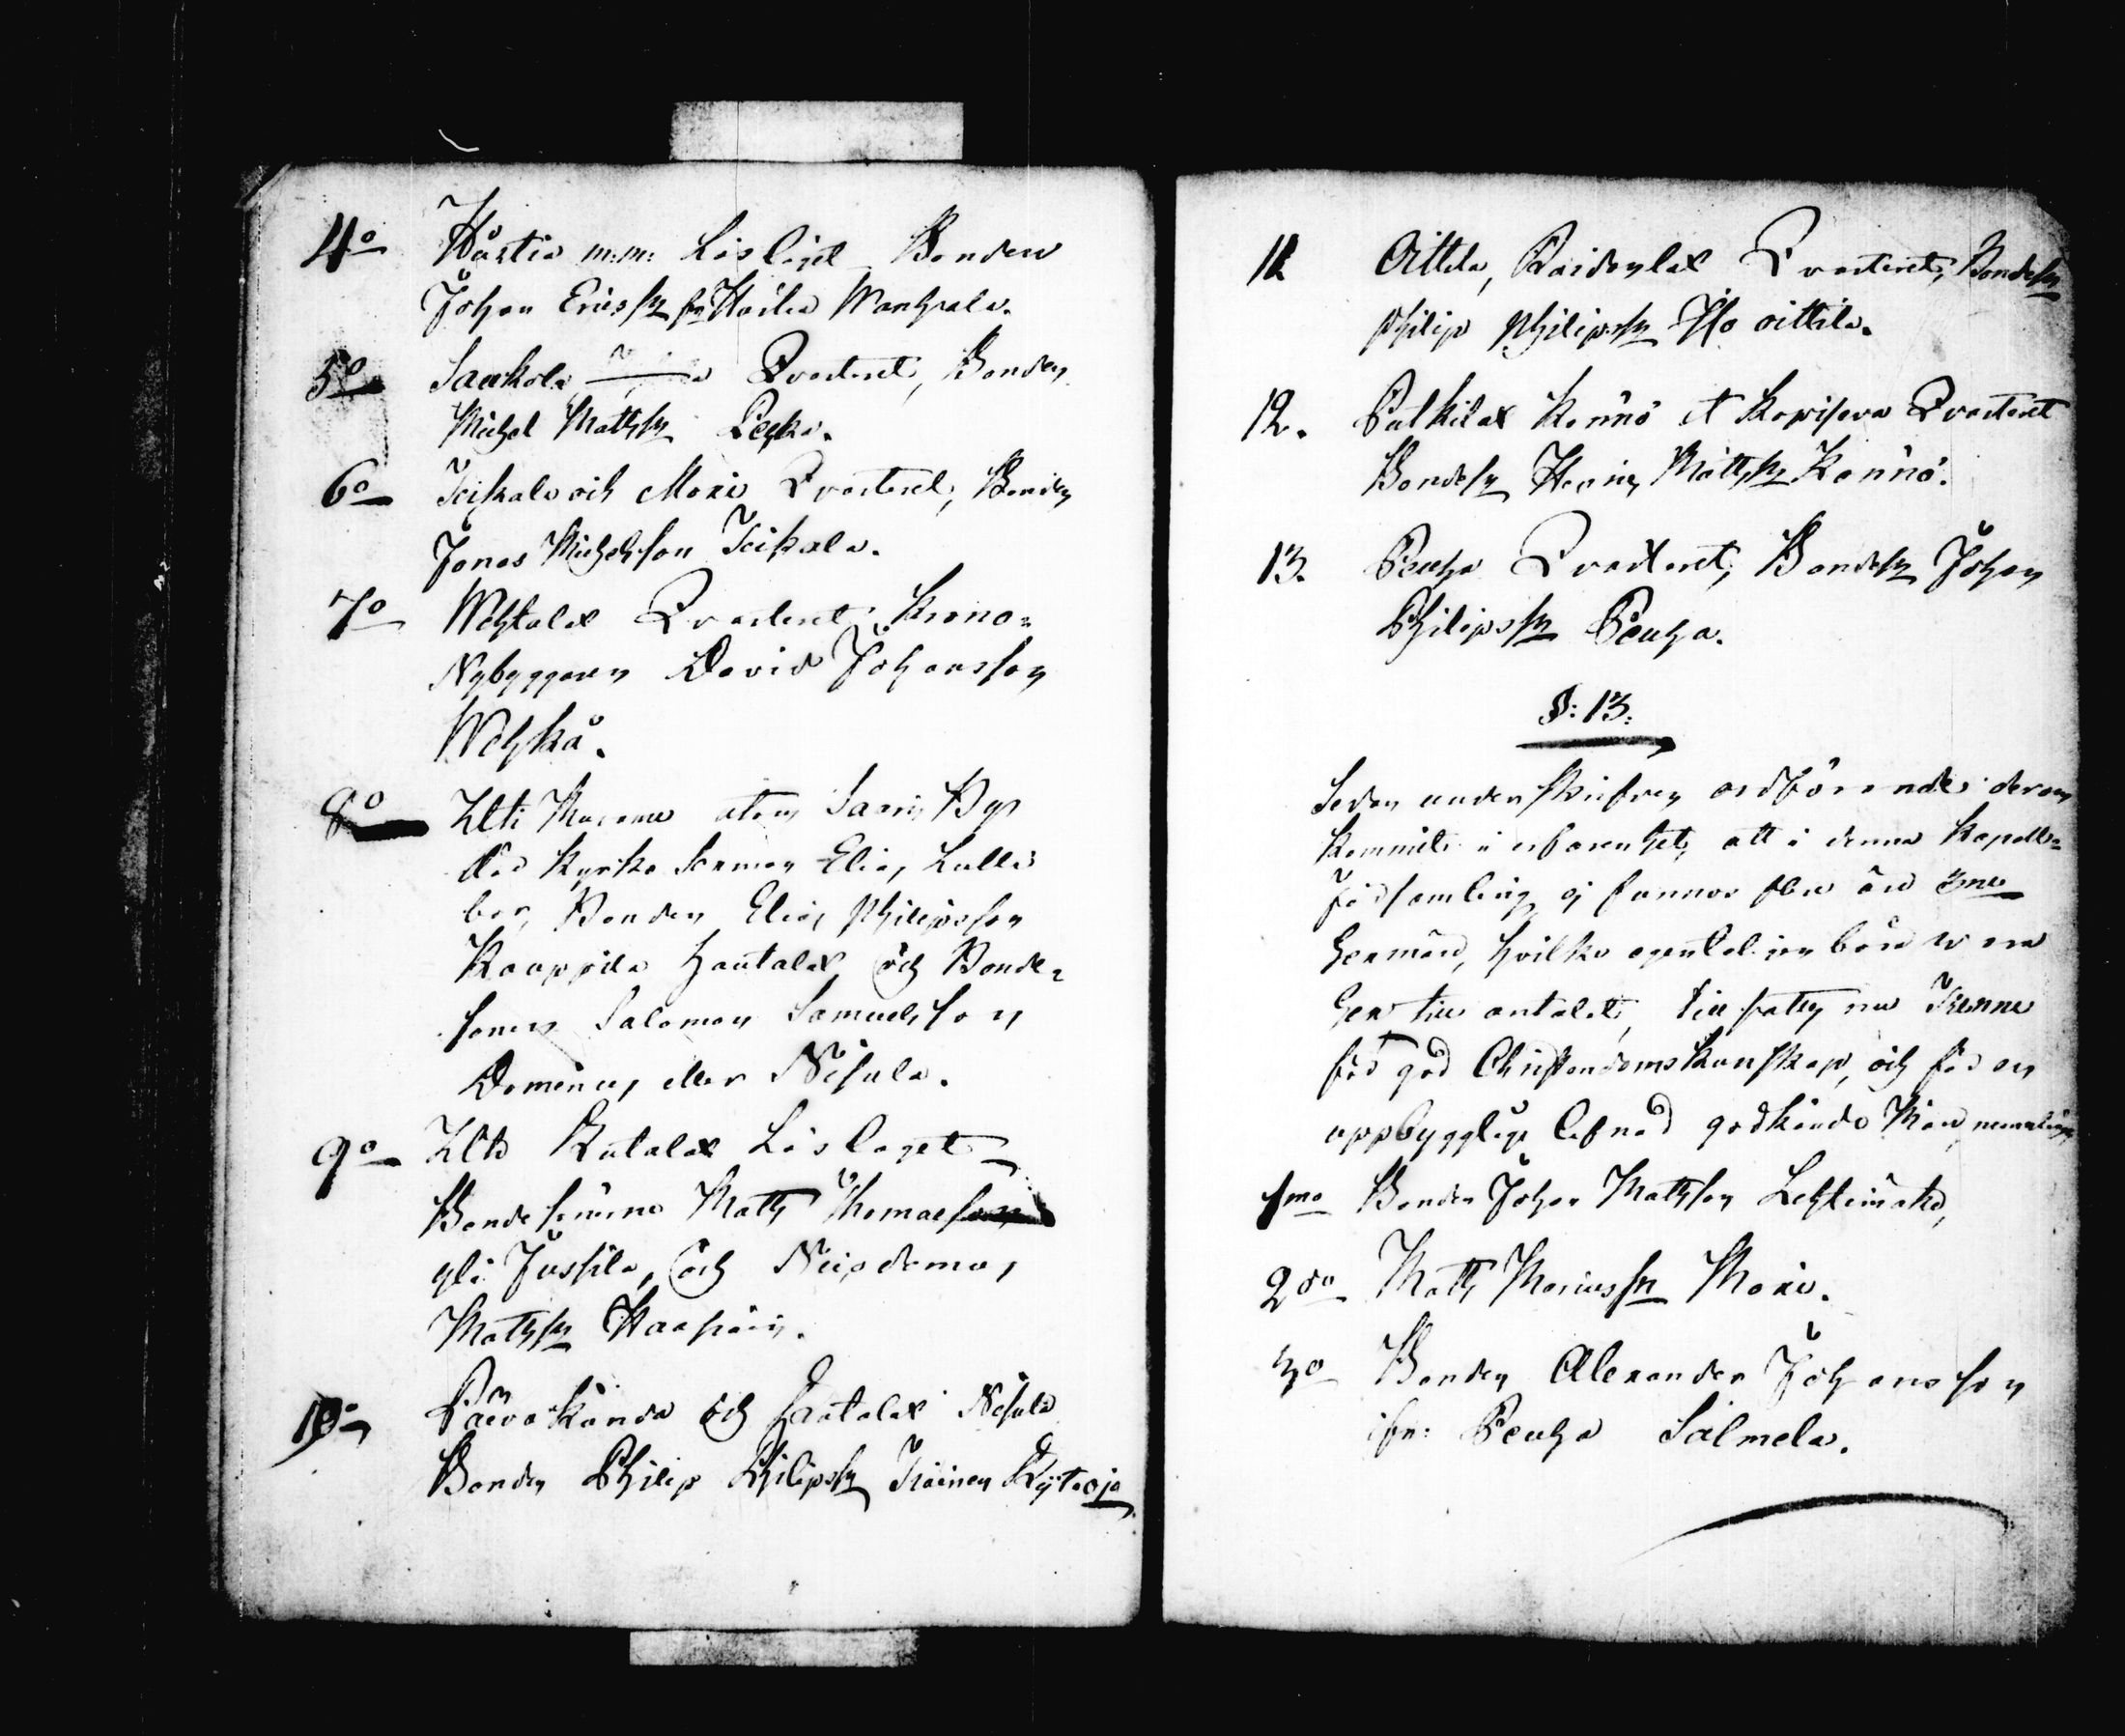 4o Hästiö m:m: Läslaget Bonden
Johan Erics Sn fr Hästiö Wanhala.
5o Saukola Qvarteret, Bonden
Michel Matts Sn Pecka.
6o Teikala och Moxi Qvarteret, Bonden
Jonas Michelsson Teikala.
7o Wehkalax Qvarteret, Krono=
Nybyggaren David Johansson
Wehkå.
8o utom Saari By
Kyrko Elias
Bonden Elias Philipsson
Kauppila Hautalax och Bonde=
sonen Salomon Samuelsson
eller Nisula.
9o Rutalax Läslaget
Bonde Sönerne Matts Thomasson
Jussila, och Nicodemus
Matts Sn Haapain.
10o Päiväkunda och Hautalax Nisula
Bonden Philip Philips Sn Rytioja
11 Oittila, Qvarteret, Bonde Sn
Philip Philips Sn Iso oittila.
12. Putkilax Könnö et Korpisova Qvarteret
Bonde Sn Henric Matts Sn Könnö.
13. Peuha Qvarteret, Bonde Sn Johan
Philips Sn Peuha.
§: 13.
Sedan underskrifven ordförande derom
kommit i erfarenhet, att i denna Kapell=
församling ej funnos fler än 3ne
Sexmän, hvilka egenteligen böra vara
Sex till antalet, tillsattes nu Trenne
för god Christendomskunskap, och för en
uppbygglig lefnad godkände Män nemligen
1mo Bonden Johan Mattsson Lehtimäki,
2do Matts Mariuss Sn Moxi.
3o Bonden Alexander Johansson
ifrn: Peuha Salmela.